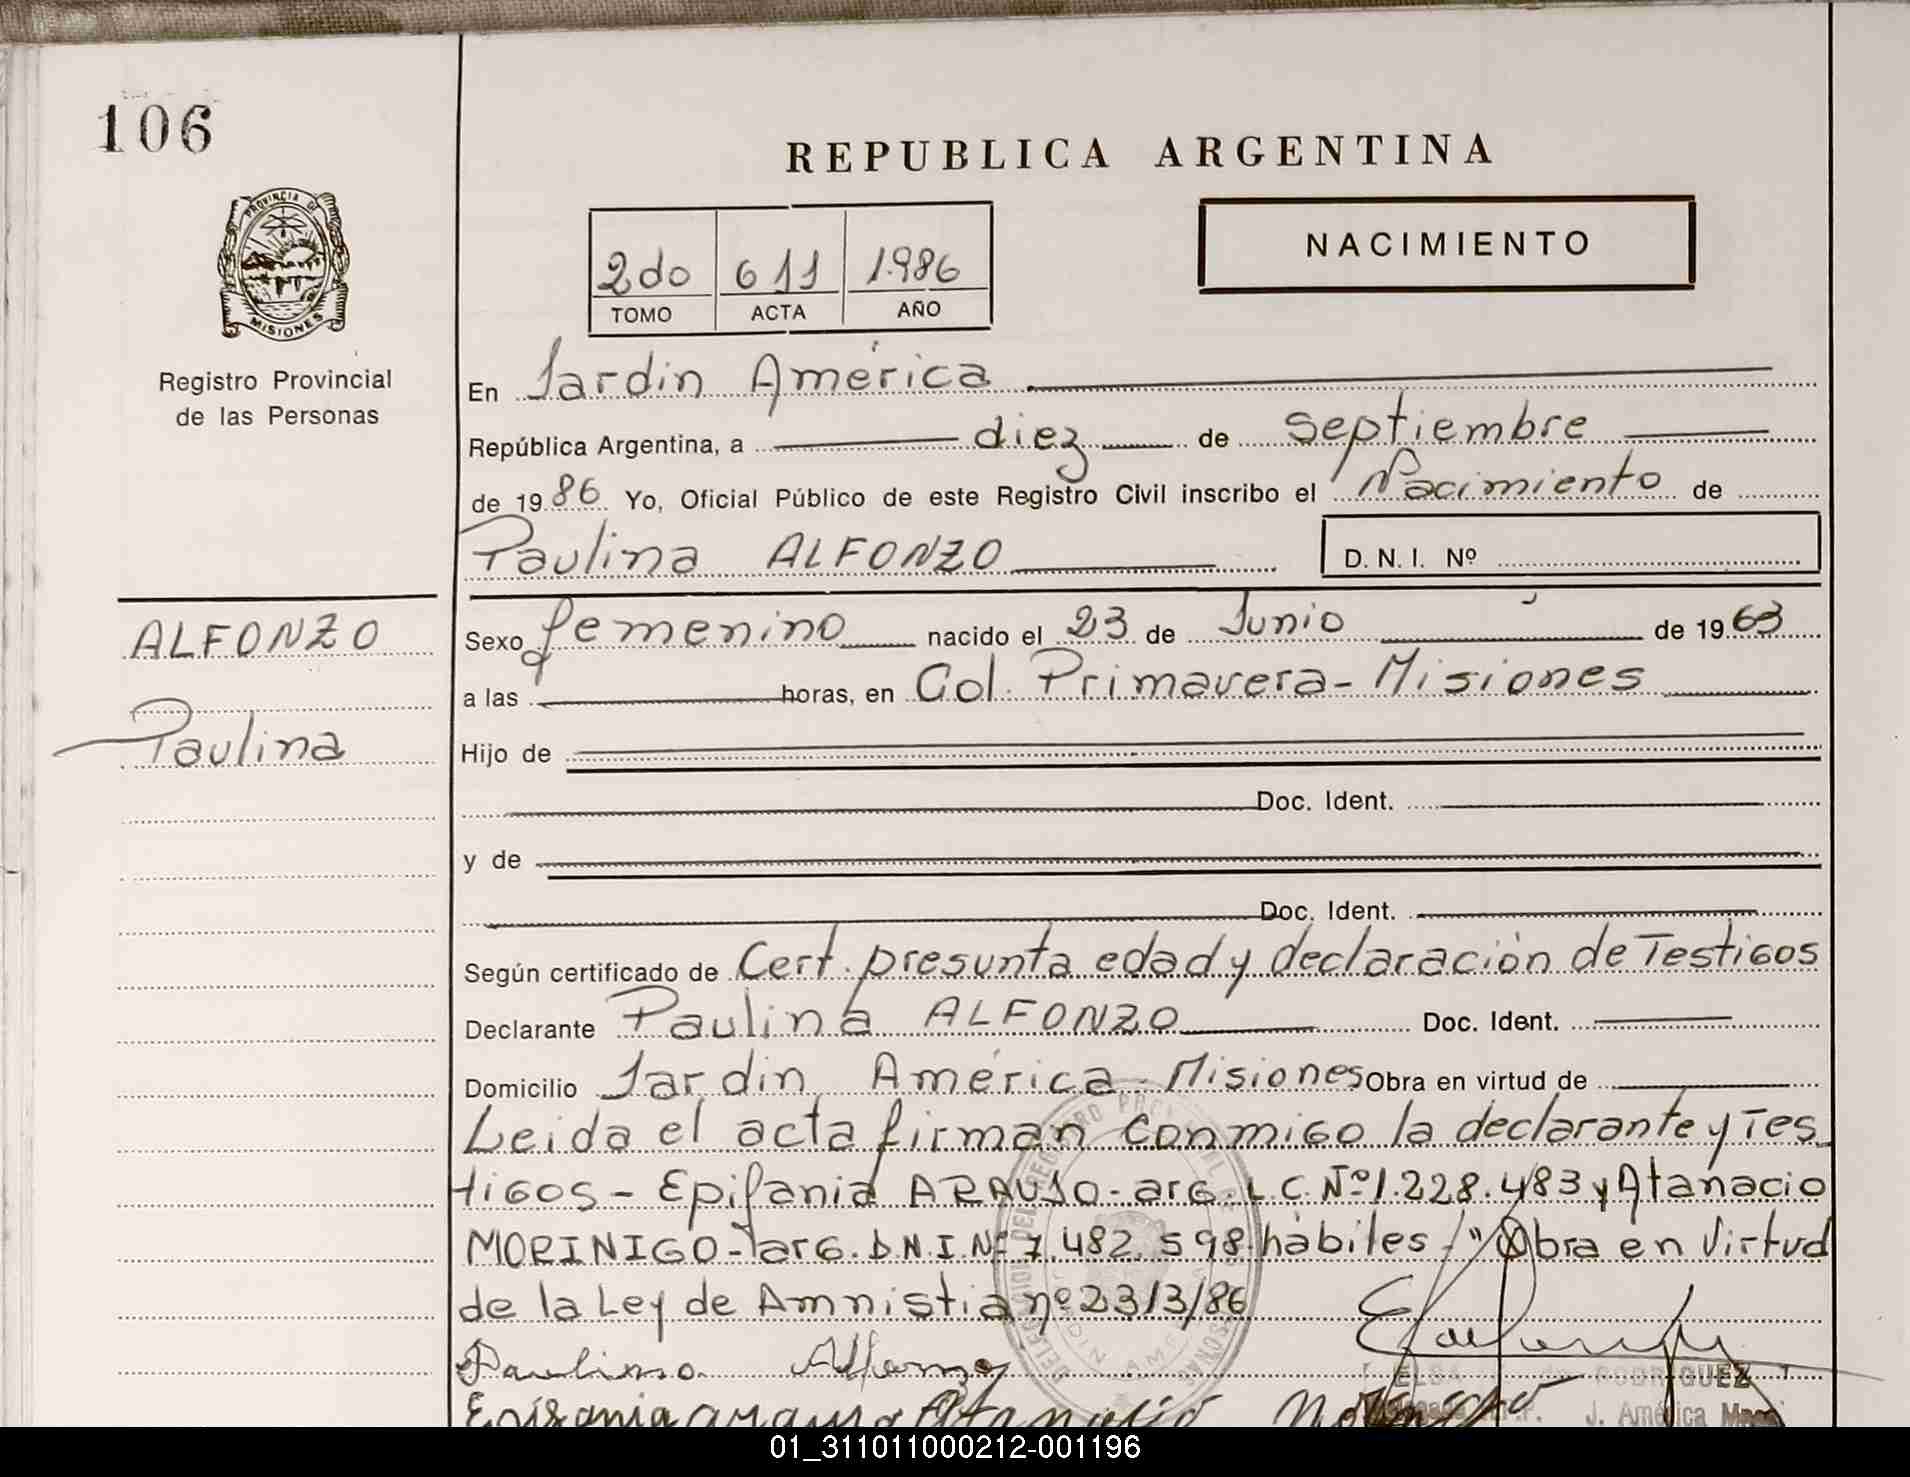 106
REPUBLICA ARGENTINA
PROVINCIA DE
MISIONES
Registro Provincial
de las Personas
2do 611 1.986
TOMO ACTA AÑO
NACIMIENTO
En Jardin América
República Argentina, a diez de septiembre
de 1986 Yo, Oficial Público de este Registro Civil inscribo el Nacimiento de
Paulina ALFONZO D.N.I. Nº
ALFONZO
Paulina
Sexo femenino nacido el 23 de Junio de 1963
a las horas, en Col. Primavera - Misiones
Hijo de
Doc. Ident.
y de
Doc. Ident.
Según certificado de Cert. presunta edad y declaración de Testigos
Declarante Paulina ALFONZO Doc. Ident.
Domicilio Jardin América - Misiones Obra en virtud de
Leida el acta firman conmigo la declarante y Tes
tigos - Epifania ARAUJO - arg. L.C. Nº 1.228.483 y Atanacio
MORINIGO - arg. D.N.I. Nº 7.482.598 hábiles /"Obra en Virtud
de la Ley de Amnistia nº 2313/86
Paulina Alfonzo
ELSA de RODRIGUEZ
Epifania araujo Atanacio
J. América
01_311011000212-001196